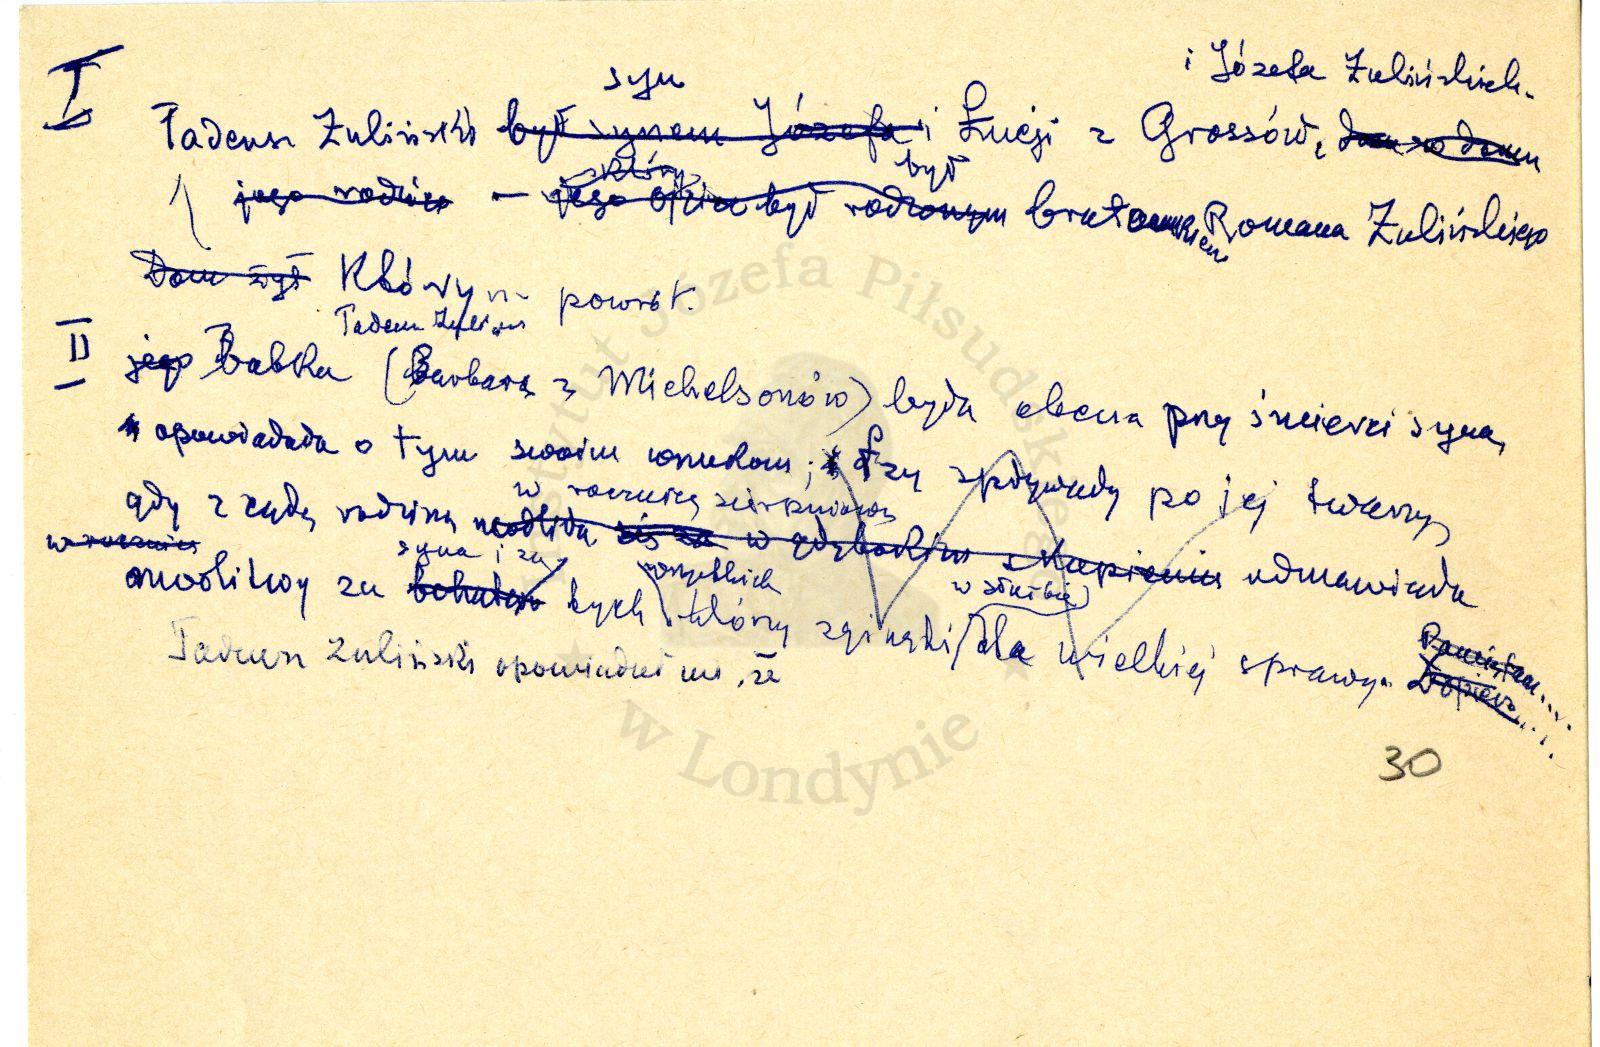 I
syn
i Józefa Żulińskich.
Tadeusz Żuliński był synem Józefa i Łucji z Grossów,
który był
jego rodzice — jego ojciec był rodzonym bratankiem Romana Żulińskiego
Dom żył Który powrót.
II
Tadeusza Żulińs
jego Babka (Barbara z Michelsonów) była obecna przy śmierci syna,
opowiadała o tym swoim wnukom; Łzy spływały po jej twarzy,
w rocznicę sierpniową
gdy z całą rodziną modliła się za w głębokim skupieniu odmawiała
w rocznicę
syna i za wszystkich w służbie
modlitwy za bohaterów tych którzy zginęli dla wielkiej sprawy.
Pamiętam....
Dopiero.....
Tadeusz Żuliński opowiadał mi, że
30
Instytut Józefa Piłsudskiego
w Londynie